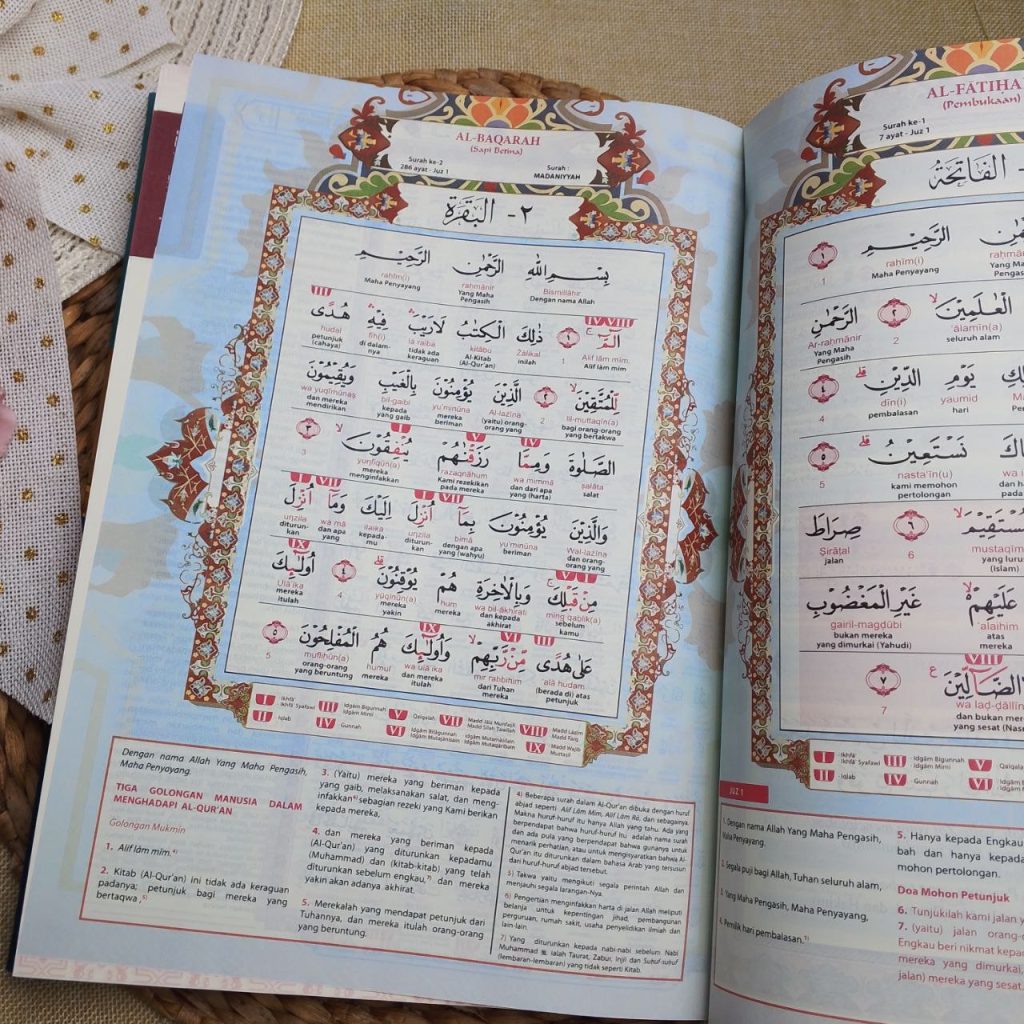 AL-BAQARAH
(Sapi Betina)
Surah ke-2
286 ayat - Juz 1
Surah :
MADANIYYAH
٢- البقرة
بِسْمِ اللّٰهِ الرَّحْمٰنِ الرَّحِيْمِ
Bismillāhir raḥmānir raḥīm(i)
Dengan nama Allah Yang Maha Pengasih Maha Penyayang
IV VIII III
الۤمّۤ ۚ ١ ذٰلِكَ الْكِتٰبُ لَا رَيْبَ ۛ فِيْهِ ۛ هُدًى
Alif lām mīm. 1 Żālikal kitābu lā raiba fīh(i) hudal
Alif lām mīm inilah Al-Kitab (Al-Qur'an) tidak ada keraguan di dalam-nya petunjuk (cahaya)
لِّلْمُتَّقِيْنَ ۙ ٢ الَّذِيْنَ يُؤْمِنُوْنَ بِالْغَيْبِ وَيُقِيْمُوْنَ
lil-muttaqīn(a) 2 Al-lażīna yu'minūna bil-gaibi wa yuqīmūnaṣ
bagi orang-orang yang bertakwa (yaitu) orang-orang yang mereka beriman kepada yang gaib dan mereka mendirikan
IV V I
الصَّلٰوةَ وَمِمَّا رَزَقْنٰهُمْ يُنْفِقُوْنَ ۙ ٣
ṣalāta wa mimmā razaqnāhum yunfiqūn(a) 3
salat dan dari apa yang (harta) Kami rezekikan pada mereka mereka menginfakkan
VII I VII I
وَالَّذِيْنَ يُؤْمِنُوْنَ بِمَآ اُنْزِلَ اِلَيْكَ وَمَآ اُنْزِلَ
Wal-lażīna yu'minūna bimā unzila ilaika wa mā unzila
dan orang-orang yang beriman dengan apa yang (wahyu) diturun-kan kepada-mu dan apa yang diturun-kan
V I IX
مِنْ قَبْلِكَ ۚ وَبِالْاٰخِرَةِ هُمْ يُوْقِنُوْنَ ۗ ٤ اُولٰۤىِٕكَ
ming qablik(a) wa bil-ākhirati hum yūqinūn(a) 4 Ulā'ika
sebelum kamu dan kepada akhirat mereka mereka yakin mereka itulah
VI III IX
عَلٰى هُدًى مِّنْ رَّبِّهِمْ ۙ وَاُولٰۤىِٕكَ هُمُ الْمُفْلِحُوْنَ ٥
alā hudam mir rabbihim wa ulā'ika humul mufliḥūn(a) 5
(berada di) atas petunjuk dari Tuhan mereka dan mereka itulah mereka orang-orang yang beruntung
I Ikhfā' Ikhfā' Syafawī III Idgām Bigunnah Idgām Mīmī V Qalqalah VII Madd Jā'iz Munfaṣil Madd Ṣilah Ṭawīlah VIII Madd Lāzim Madd Farq
II Iqlab IV Gunnah VI Idgām Bilāgunnah Idgām Mutajānisain Idgām Mutamāṡilain Idgām Mutaqāribain IX Madd Wajib Muttaṣil
Dengan nama Allah Yang Maha Pengasih,
Maha Penyayang.
TIGA GOLONGAN MANUSIA DALAM
MENGHADAPI AL-QUR'AN
Golongan Mukmin
1. Alif lām mīm.⁴⁾
2. Kitab (Al-Qur'an) ini tidak ada keraguan
padanya; petunjuk bagi mereka yang
bertaqwa,⁵⁾
3. (Yaitu) mereka yang beriman kepada
yang gaib, melaksanakan salat, dan meng-
infakkan⁶⁾ sebagian rezeki yang Kami berikan
kepada mereka,
4. dan mereka yang beriman kepada
(Al-Qur'an) yang diturunkan kepadamu
(Muhammad) dan (kitab-kitab) yang telah
diturunkan sebelum engkau,⁷⁾ dan mereka
yakin akan adanya akhirat.
5. Merekalah yang mendapat petunjuk dari
Tuhannya, dan mereka itulah orang-orang
yang beruntung.
4) Beberapa surah dalam Al-Qur'an dibuka dengan huruf
abjad seperti Alif Lām Mīm, Alif Lām Rā, dan sebagainya.
Makna huruf-huruf itu hanya Allah yang tahu. Ada yang
berpendapat bahwa huruf-huruf itu adalah nama surah
dan ada pula yang berpendapat bahwa gunanya untuk
menarik perhatian, atau untuk mengisyaratkan bahwa Al-
Qur'an itu diturunkan dalam bahasa Arab yang tersusun
dari huruf-huruf abjad tersebut.
5) Takwa yaitu mengikuti segala perintah Allah dan
menjauhi segala larangan-Nya.
6) Pengertian menginfakkan harta di jalan Allah meliputi
belanja untuk kepentingan jihad, pembangunan
perguruan, rumah sakit, usaha penyelidikan ilmiah dan
lain-lain.
7) Yang diturunkan kepada nabi-nabi sebelum Nabi
Muhammad ﷺ ialah Taurat, Zabur, Injil dan Suḥuf-suḥuf
(lembaran-lembaran) yang tidak seperti Kitab.
AL-FATIHA
(Pembukaan)
Surah ke-1
7 ayat - Juz 1
- الفاتحة
الرَّحِيْمِ ١
raḥmānir raḥīm(i)
Yang Maha Pengasih Maha Penyayang 1
الْعٰلَمِيْنَ ۙ ٢ الرَّحْمٰنِ
'ālamīn(a) 2 Ar-raḥmānir
seluruh alam Yang Maha Pengasih
يَوْمِ الدِّيْنِ ۗ ٤
yaumid dīn(i) 4
hari pembalasan
نَسْتَعِيْنُ ۗ ٥
nasta'īn(u) 5
kami memohon pertolongan
٦ صِرَاطَ
mustaqīm
6 Ṣirāṭal
yang lurus (Islam) jalan
عَلَيْهِمْ ۙ غَيْرِ الْمَغْضُوْبِ
alaihim gairil-magḍūbi
atas mereka bukan mereka yang dimurkai (Yahudi)
VIII
الضَّاۤلِّيْنَ ٧
wa laḍ-ḍāllīn
7
dan bukan mereka yang sesat (Nas
I Ikhfā' Ikhfā' Syafawī III Idgām Bigunnah Idgām Mīmī V Qalqala
II Iqlab IV Gunnah VI
JUZ 1
1. Dengan nama Allah Yang Maha Pengasih,
Maha Penyayang.
2. Segala puji bagi Allah, Tuhan seluruh alam,
3. Yang Maha Pengasih, Maha Penyayang,
4. Pemilik hari pembalasan.¹⁾
5. Hanya kepada Engkau
bah dan hanya kepada
mohon pertolongan.
Doa Mohon Petunjuk
6. Tunjukilah kami jalan y
7. (yaitu) jalan orang-o
Engkau beri nikmat kepad
mereka yang dimurkai,
jalan) mereka yang sesat.